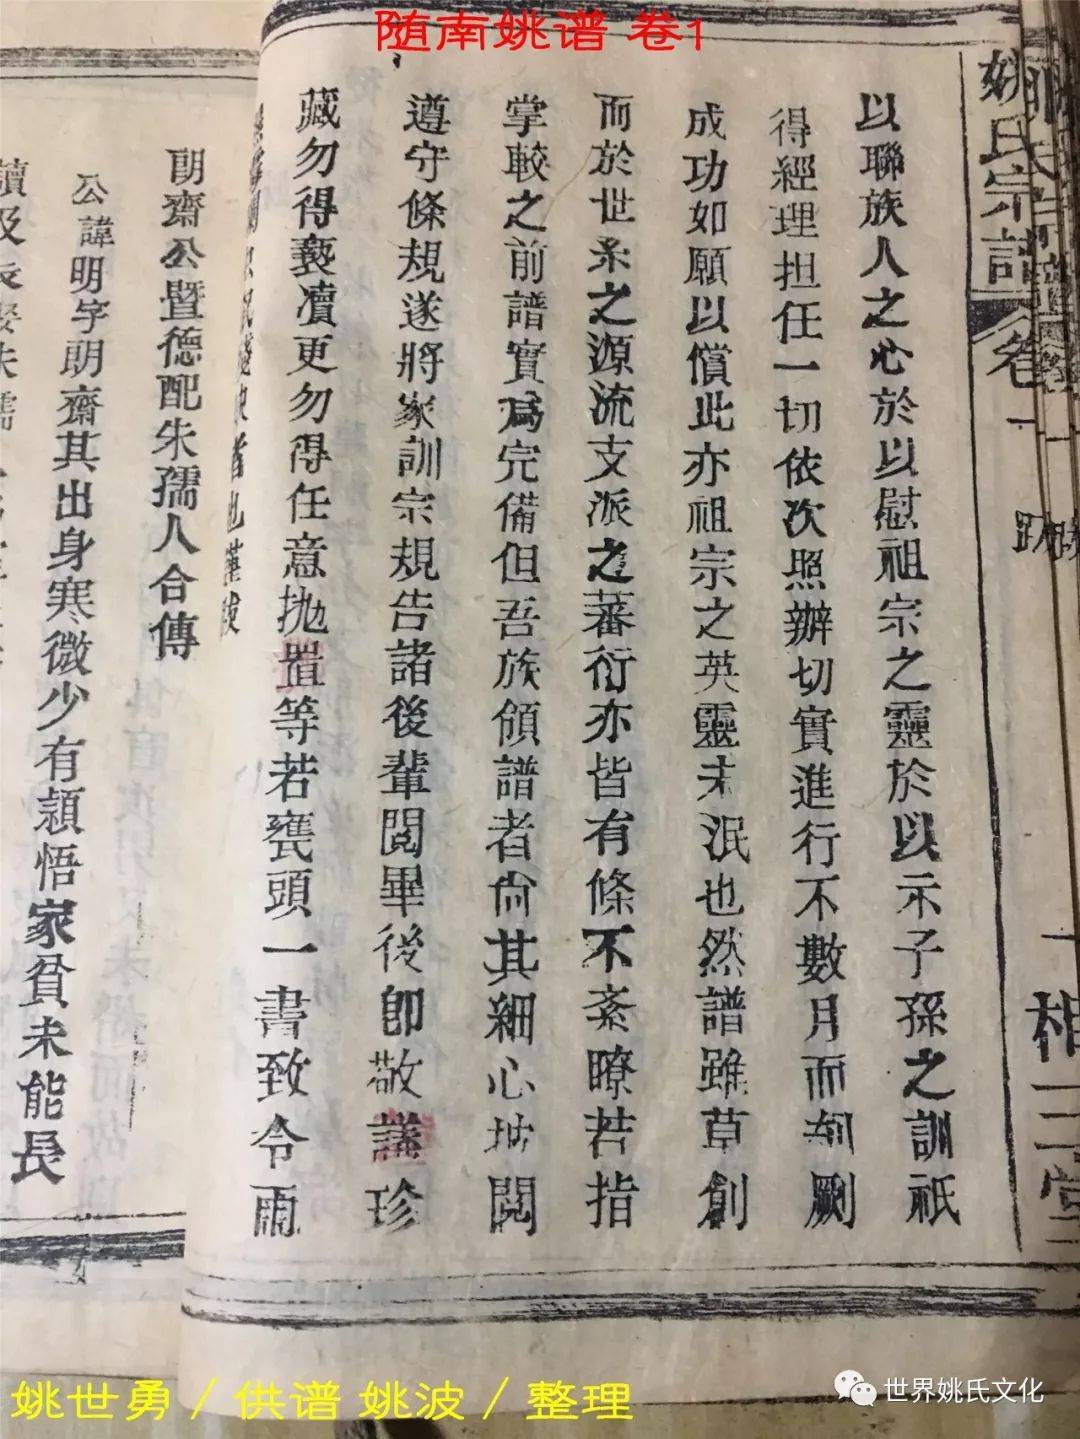 随南姚谱 卷1
姚氏宗譜
卷一
跋
相三堂
以聯族人之心於以慰祖宗之靈於以示子孫之訓祇
得經理担任一切依次照辦切實進行不數月而剞劂
成功如願以償此亦祖宗之英靈未泯也然譜雖草創
而於世系之源流支派之蕃衍亦皆有條不紊瞭若指
掌較之前譜實爲完備但吾族領譜者尙其細心披閱
遵守條規遂將家訓宗規告諸後輩閱畢後卽敬謹珍
藏勿得褻瀆更勿得任意拋置等若甕頭一書致令雨
者也謹跋
朗齋公暨德配朱孺人合傳
公諱明字朗齋其出身寒微少有穎悟家貧未能長
讀及長娶朱孺
姚世勇／供谱 姚波／整理
世界姚氏文化